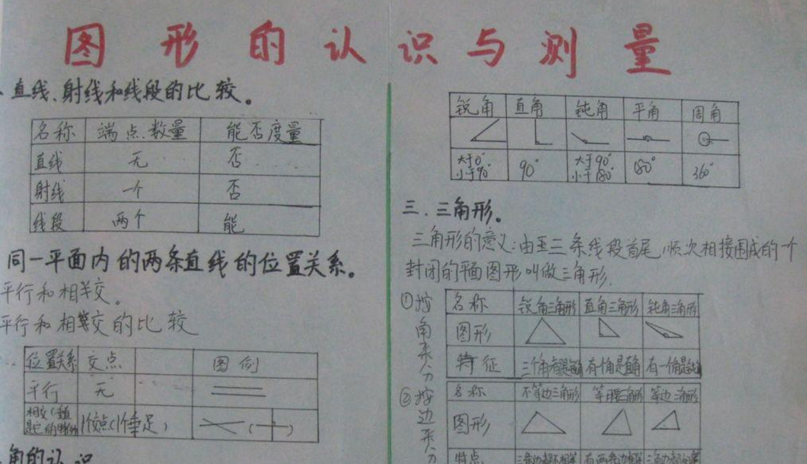 图形的认识与测量
直线、射线和线段的比较。
名称 端点数量 能否度量
直线 无 否
射线 一个 否
线段 两个 能
同一平面内的两条直线的位置关系。
平行和相交。
平行和相交的比较
位置关系 交点 图例
平行 无
1个交点(1个垂足)
角的认识
锐角 直角 钝角 平角 周角
大于0°小于90° 90° 大于90°小于180° 180° 360°
三、三角形。
三角形的意义:由三条线段首尾顺次相接围成的一个
封闭的平面图形叫做三角形.
①按角来分
名称 锐角三角形 直角三角形 钝角三角形
图形
特征 三个角都是锐角 有一个角是直角 有一个角是钝角
②按边来分
名称 不等边三角形 等腰三角形 等边三角形
图形
特点